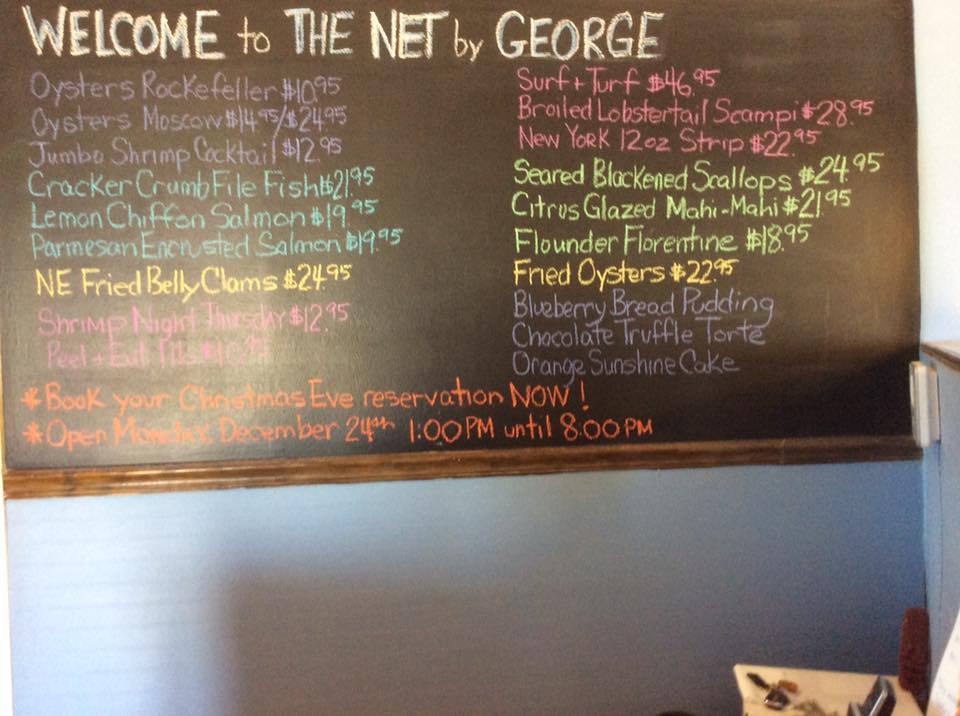 WELCOME to THE NET by GEORGE
Oysters Rockefeller $10.95
Oysters Moscow $14.95/$24.95
Jumbo Shrimp Cocktail $12.95
Cracker Crumb File Fish $21.95
Lemon Chiffon Salmon $19.95
Parmesan Encrusted Salmon $19.95
NE Fried Belly Clams $24.95
Shrimp Night Thursday $12.95
Peel + Eat
Surf + Turf $46.95
Broiled Lobstertail Scampi $28.95
New York 12oz Strip $22.95
Seared Blackened Scallops $24.95
Citrus Glazed Mahi-Mahi $21.95
Flounder Florentine $18.95
Fried Oysters $22.95
Blueberry Bread Pudding
Chocolate Truffle Torte
Orange Sunshine Cake
*Book your Christmas Eve reservation NOW!
*Open Monday, December 24th 1:00PM until 8:00PM